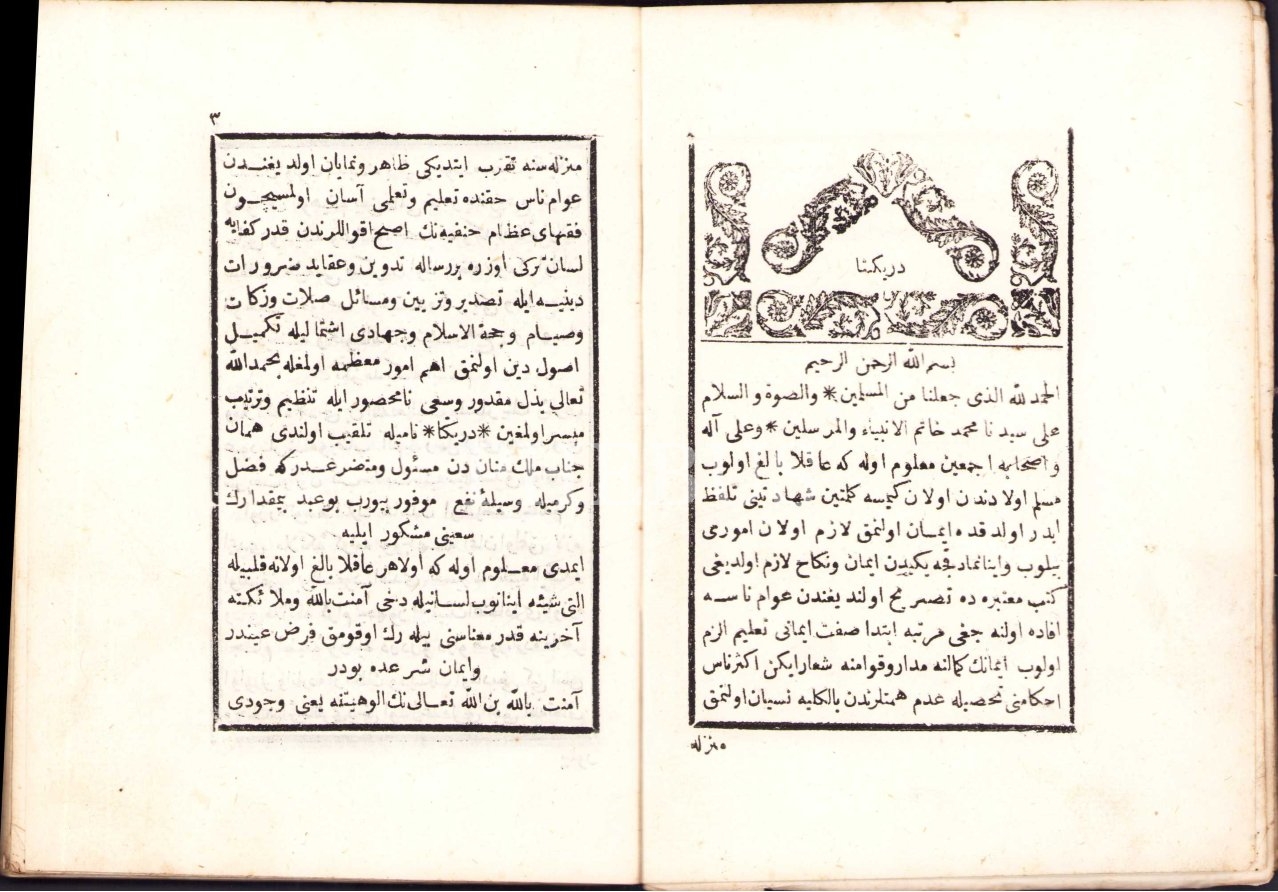 دریکتا
بسم الله الرحمن الرحیم
الحمدلله الذی جعلنا من المسلمین * والصوة والسلام
علی سیدنا محمد خاتم الانبیاء والمرسلین * وعلی آله
واصحابه اجمعین معلوم اوله که عاقلا بالغ اولوب
مسلم اولادندن اولان کیمسه کلمتین شهادتینی تلفظ
ایدر اولدقده ایمان اولنمق لازم اولان اموری
بیلوب واینانمادقچه یکیدن ایمان ونکاح لازم اولدیغی
کتب معتبره ده تصریح اولندیغندن عوام ناسه
افاده اولنه جغی مرتبه ابتدا صفت ایمانی تعلیم الزم
اولوب ایمانك کمالنه مدار وقوامنه شعار ایکن اکثر ناس
احکامنی تحصیله عدم همتلرندن بالکلیه نسیان اولنمق
منزله
٣
منزله سنه تقرب ایتدیکی ظاهر ونمایان اولدیغندن
عوام ناس حقنده تعلیم وتعلمی آسان اولمسیچون
فقهای عظام حنفیه نك اصح اقواللرندن قدر کفایه
لسان ترکی اوزره بر رساله تدوین وعقاید ضرورات
دینیه ایله تصدیر وتزیین ومسائل صلات وزکات
وصیام وحجة الاسلام وجهادی اشتمالیله تکمیل
اصول دین اولنمق اهم امور معظمه اولمغله بحمدالله
تعالی بذل مقدور وسعی نامحصور ایله تنظیم وترتیب
میسر اولمغین *دریکتا* نامیله تلقیب اولندی همان
جناب ملك منان دن مسئول ومتضرعدرکه فضل
وکرمیله وسیلهٔ نفع موفور بیورب بو عبد بیمقدارك
سعینی مشکور ایلیه
ایمدی معلوم اوله که اولا هر عاقلا بالغ اولانه قلبیله
التی شیئه اینانوب لسانیله دخی آمنت بالله وملائکته
آخرینه قدر معناسنی بیله رك اوقومق فرض عیندر
وایمان شرعده بودر
آمنت بالله بن الله تعالی نك الوهیتنه یعنی وجودی